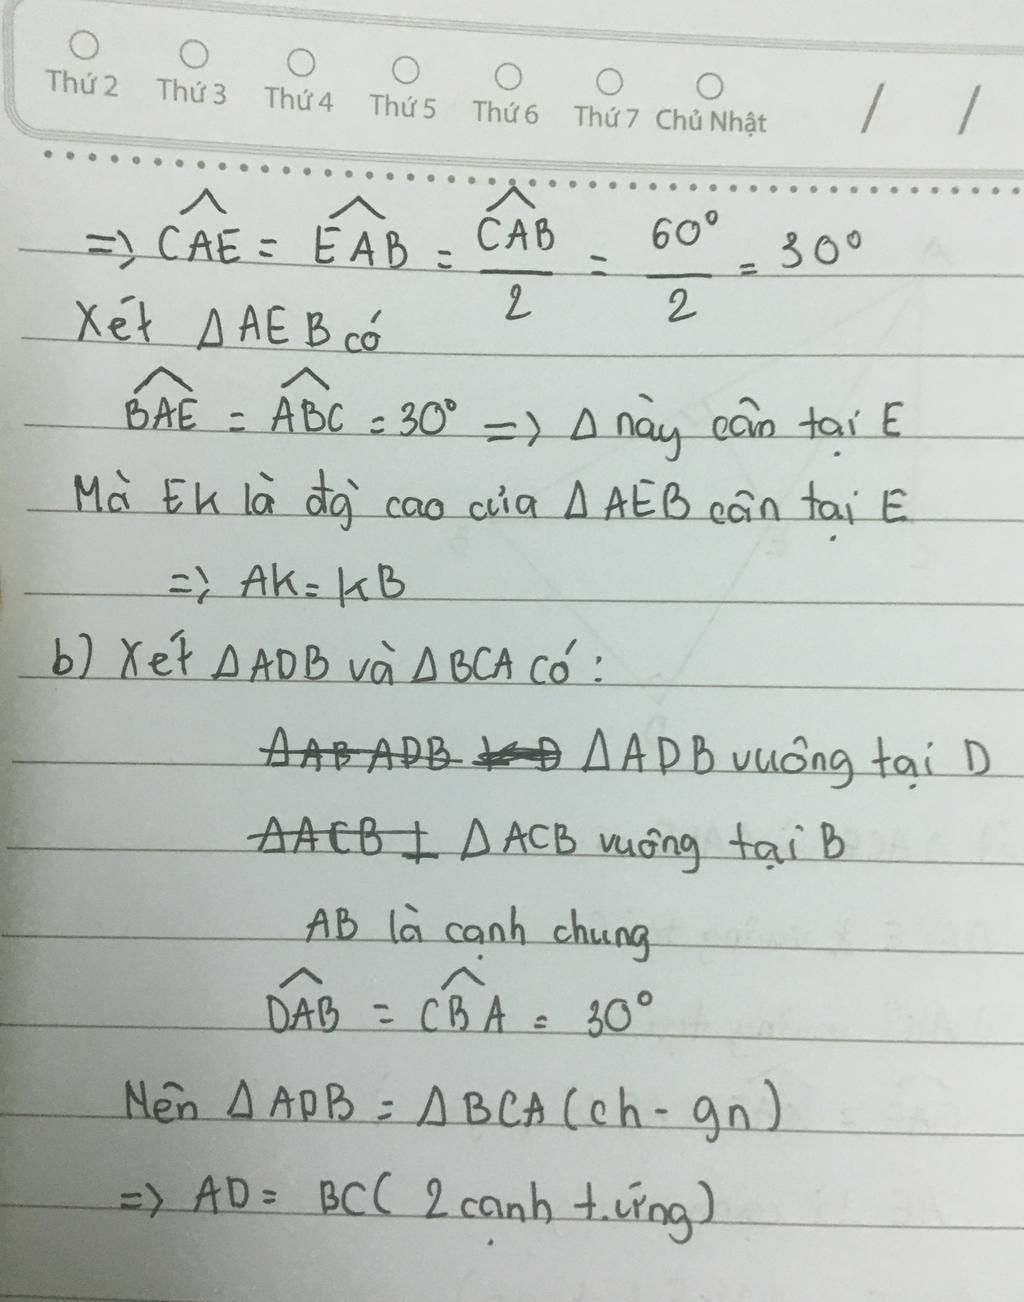 Thứ 2 Thứ 3 Thứ 4 Thứ 5 Thứ 6 Thứ 7 Chủ Nhật / /
=> CAE = EAB = CAB/2 = 60°/2 = 30°
Xét ΔAEB có
BAE = ABC = 30° => Δ này cân tại E
Mà EK là đg cao của ΔAEB cân tại E
=> AK = KB
b) Xét ΔADB và ΔBCA có:
ΔADB vuông tại D
ΔACB vuông tại B
AB là cạnh chung
DAB = CBA = 30°
Nên ΔADB = ΔBCA (ch - gn)
=> AD = BC ( 2 cạnh t.ứng)